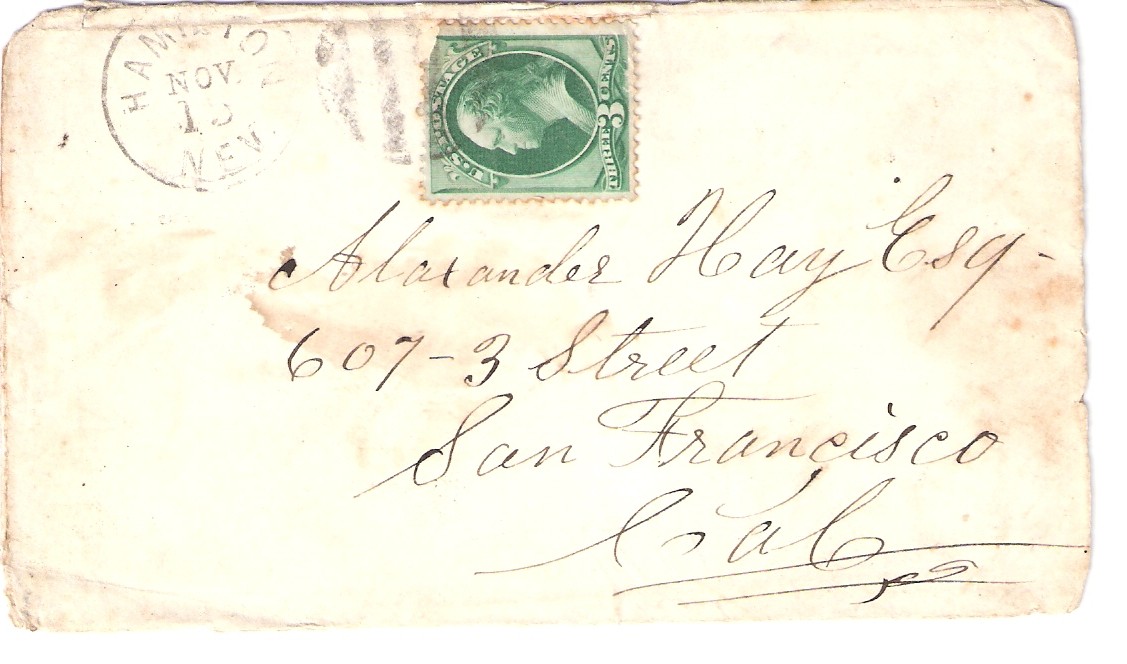 HAMILTON
NOV.
NEV.
U.S. POSTAGE
THREE 3 CENTS
Alaxander Hay Esq-
607-3 Street
San Francisco
Cal